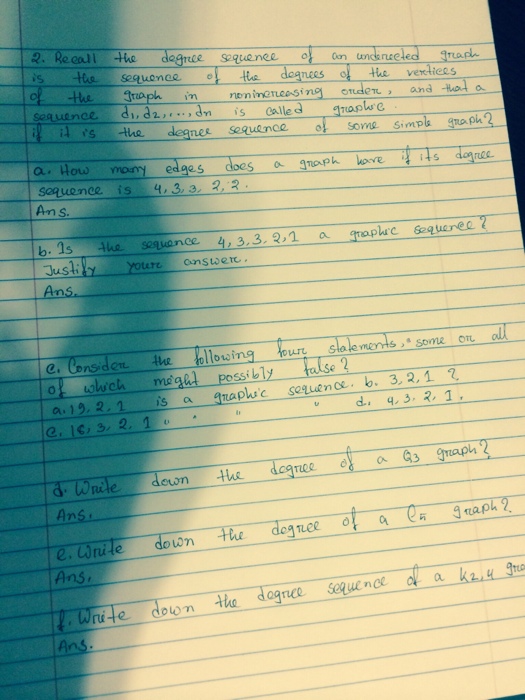 2. Recall the degree sequence of an undirected graph
is the sequence of the degrees of the vertices
of the graph in nonincreasing order, and that a
sequence d1, d2, ..., dn is called graphic
if it is the degree sequence of some simple graph?
a. How many edges does a graph have if its degree
sequence is 4, 3, 3, 2, 2.
Ans.
b. Is the sequence 4, 3, 3, 2, 1 a graphic sequence?
Justify your answer.
Ans.
c. Consider the following four statements, some or all
of which might possibly false?
a. 19, 2, 1 is a graphic sequence. b. 3, 2, 1 ?
c. 16, 3, 2, 1 " " " " d. 4, 3, 2, 1.
d. Write down the degree of a Q3 graph?
Ans.
e. Write down the degree of a graph?
Ans.
f. Write down the degree sequence of a K2,4
Ans.